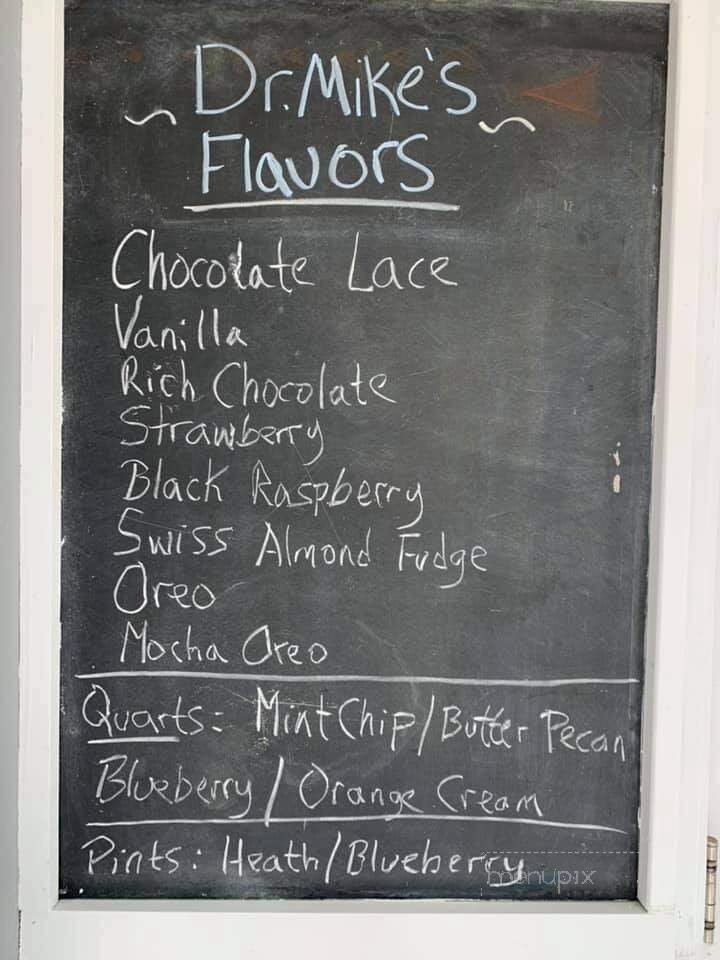 Dr. Mike's
Flavors
Chocolate Lace
Vanilla
Rich Chocolate
Strawberry
Black Raspberry
Swiss Almond Fudge
Oreo
Mocha Oreo
Quarts: Mint Chip/Butter Pecan
Blueberry/Orange Cream
Pints: Heath/Blueberry
menupix